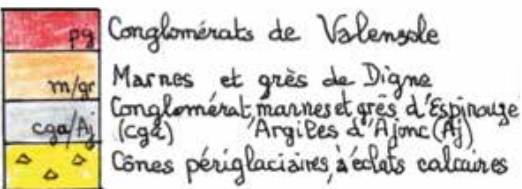 pg Conglomérats de Valensole
m/gr Marnes et grès de Digne
Conglomérat, marnes et grés d'Espinouse
cga/Aj (cga) Argiles d'Ajonc (Aj)
Cônes périglaciaires, à éclats calcaires